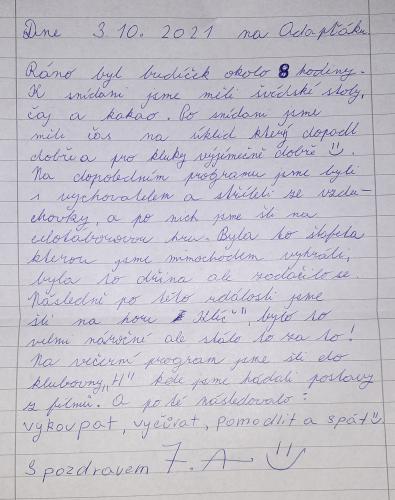 Dne 3.10. 2021 na Adapťáku
Ráno byl budíček okolo 8 hodiny.
K snídani jsme měli švédské stoly,
čaj a kakao. Po snídani jsme
měli čas na úklid který dopadl
dobře a pro kluky výjimečně dobře
Na dopoledním programu jsme byli
s vychovatelem a stříleli ze vzdu-
chovky, a po nich jsme šli na
celotáborovou hru. Byla to štafeta
kterou jsme mmochodem vyhráli,
byla to dřina ale zadařilo se.
Následně po této události jsme
šli na horu "Klíč", bylo to
velmi náročné ale stálo to za to!
Na večerní program jsme šli do
klubovny „H" kde jsme hádali postavy
z filmů. A po té následovalo:
vykoupat, vyčůrat, pomodlit a spát
S pozdravem 7.A